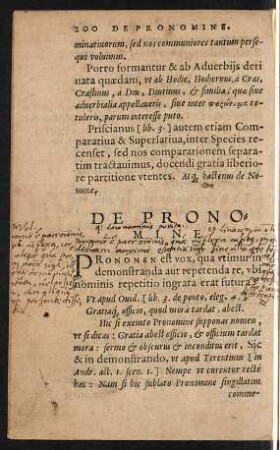 200 DE PRONOMINE.
minatiuorum, sed nos communiores tantum perse-
qui volumus.
Porro formantur & ab Aduerbijs deri
uata quædam, vt ab Hodie, Hodiernus, à Cras,
Crastinus, à Diu, Diutinus, & similia: quæ siue
aduerbialia appellaueris, siue inter
tuleris, parum interesse puto.
Priscianus [lib. 3.] autem etiam Com-
paratiua & Superlatiua, inter Species re-
censet, sed nos comparationem separa-
tim tractauimus, docendi gratia liberio-
re partitione vtentes. Atq, hactenus de No-
mine.
DE PRONO-
MINE.
PRONOMEN est vox, qua vtimur in
demonstranda aut repetenda re, vbi
nominis repetitio ingrata erat futura.
Vt apud Ouid. [lib. 3. de ponto, eleg. 4.
Gratiaq́, officio, quod mora tardat, abest.
Hic si eximto Pronomine supponas nomen,
vt si dicas: Gratia abest officio, & officium tardat
mora: sermo & obscurus & inconditus erit, Sic
& in demonstrando, vt apud Terentium [in
Andr. act. 1. scen. 1.] Nempe vt curentur rectè
hæc: Nam si hic sublato Pronomine singillatim
comme-